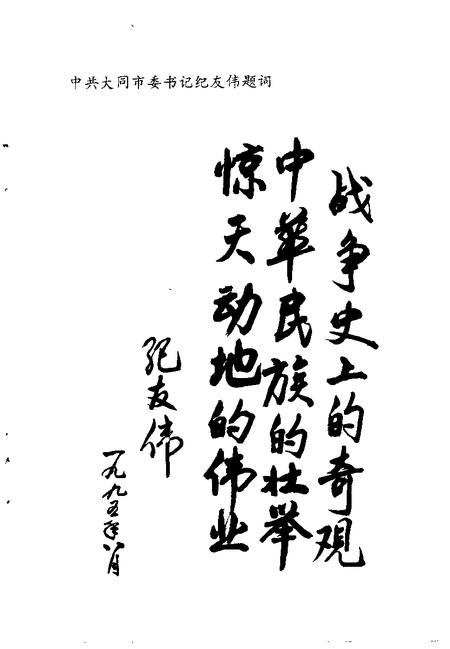 中共大同市委书记纪友伟题词
战争史上的奇观
中华民族的壮举
惊天动地的伟业
纪友伟
一九九五年八月